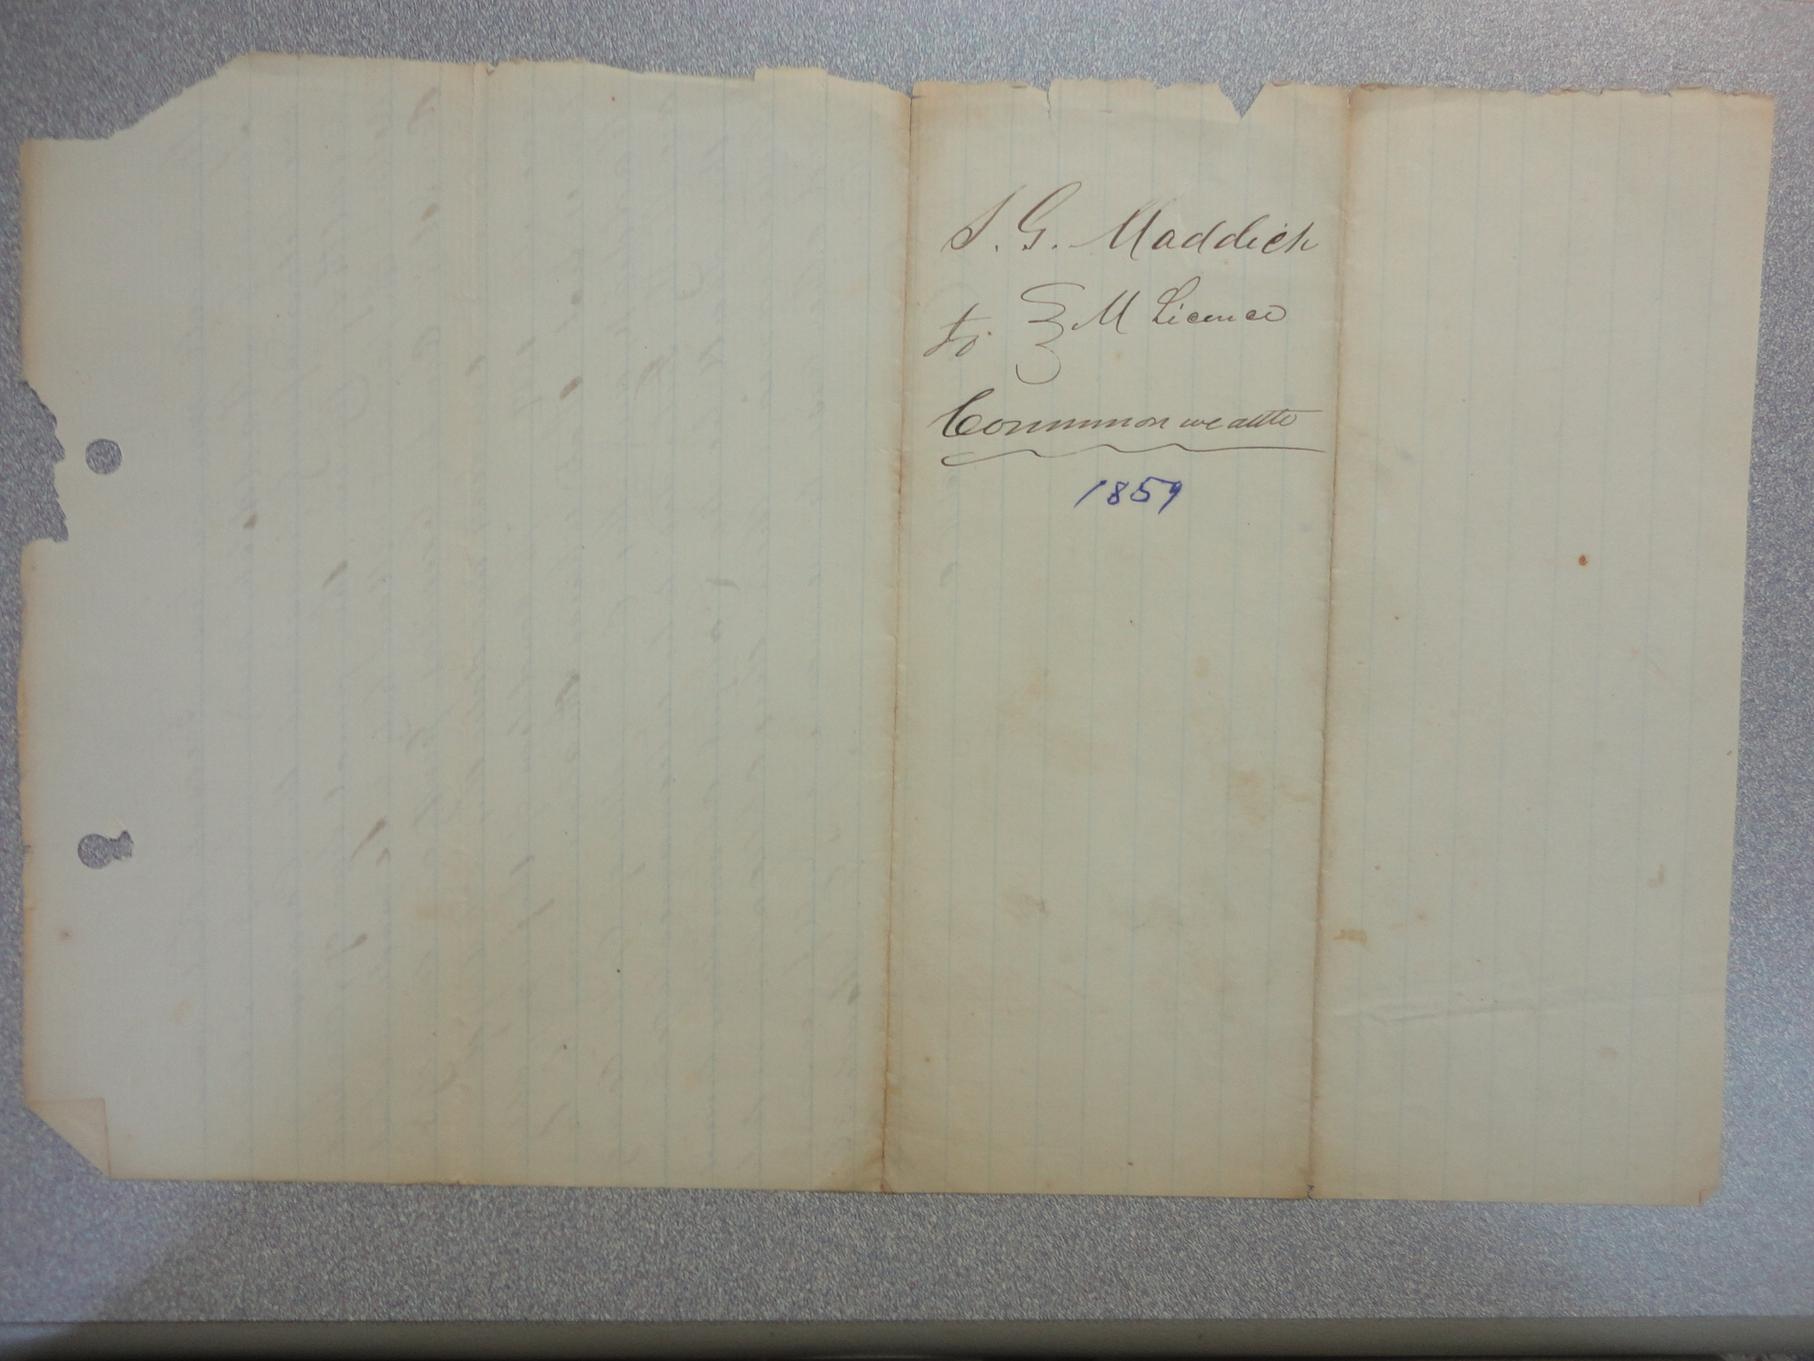 S. G. Maddick
to } M Licence
Commonwealth
1859